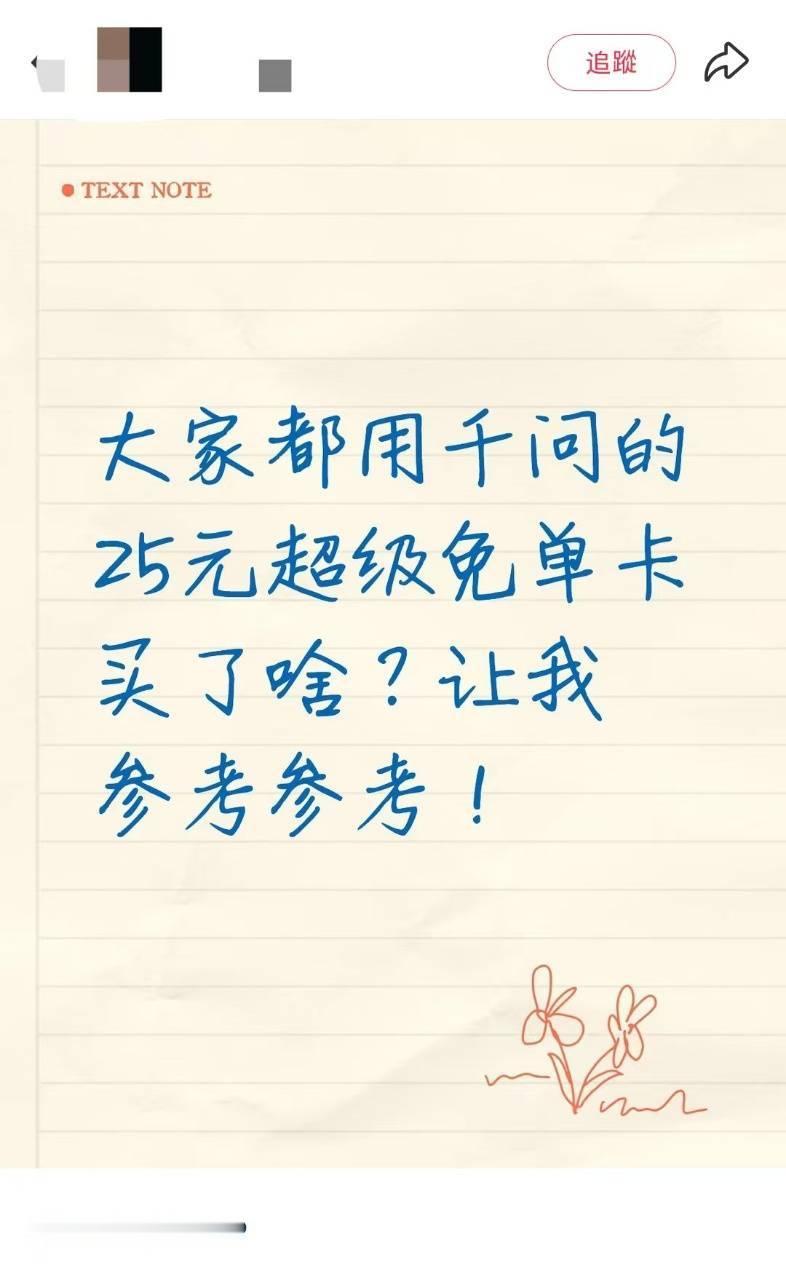 追蹤
TEXT NOTE
大家都用千问的
25元超级免单卡
买了啥?让我
参考参考!